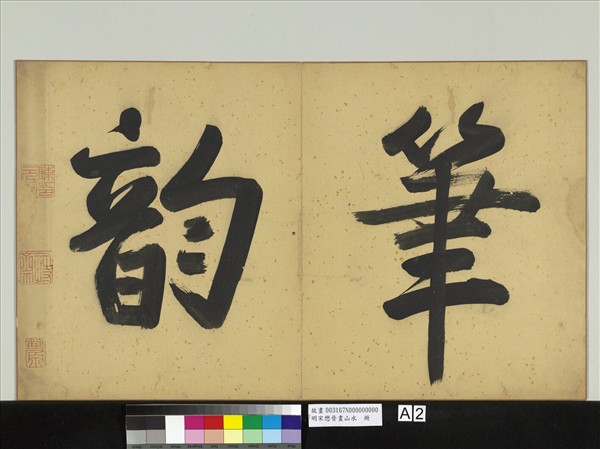 筆韵
故畫 003167N000000000
明宋懋晉畫山水 冊
A 2